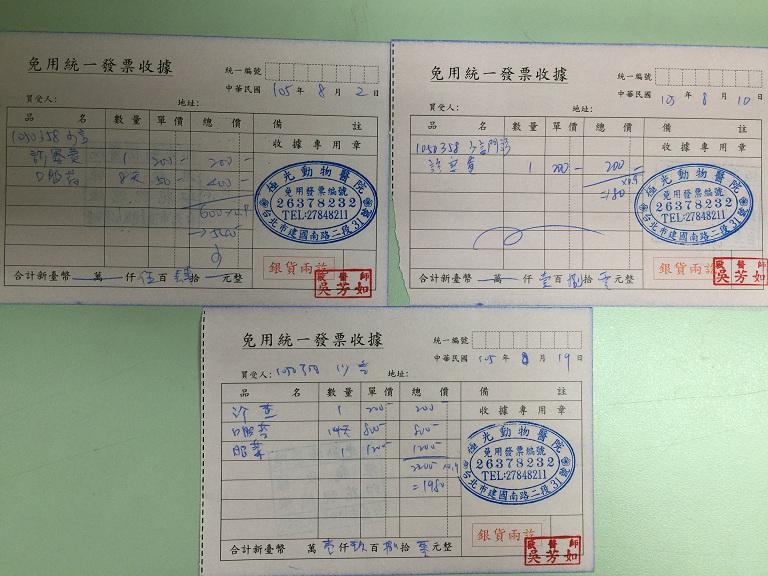 免用統一發票收據
統一編號
中華民國 105 年 8 月 2 日
買受人: 地址:
品 名 數量 單價 總價 備註
1050358
收據專用章
1 200- 200-
8天 50- 400-
600×0.9
→540
極光動物醫院
免用發票編號
26378232
TEL:27848211
台北市建國南路二段31號
銀貨兩訖
合計新臺幣 萬 仟 伍 百 肆 拾 元整
獸醫師
吳芳如
免用統一發票收據
統一編號
中華民國 105 年 8 月 10 日
買受人: 地址:
品 名 數量 單價 總價 備註
1050358
收據專用章
1 200- 200-
×0.9
=180
極光動物醫院
免用發票編號
26378232
TEL:27848211
台北市建國南路二段31號
銀貨兩訖
合計新臺幣 萬 仟 壹 百 捌 拾 零 元整
獸醫師
吳芳如
免用統一發票收據
統一編號
中華民國 105 年 8 月 19 日
買受人: 1050358 地址:
品 名 數量 單價 總價 備註
收據專用章
1 200- 200-
14天 800- 800-
1 1200- 1200-
2200 ×0.9
=1980
極光動物醫院
免用發票編號
26378232
TEL:27848211
台北市建國南路二段31號
銀貨兩訖
合計新臺幣 萬 壹 仟 玖 百 捌 拾 零 元整
獸醫師
吳芳如